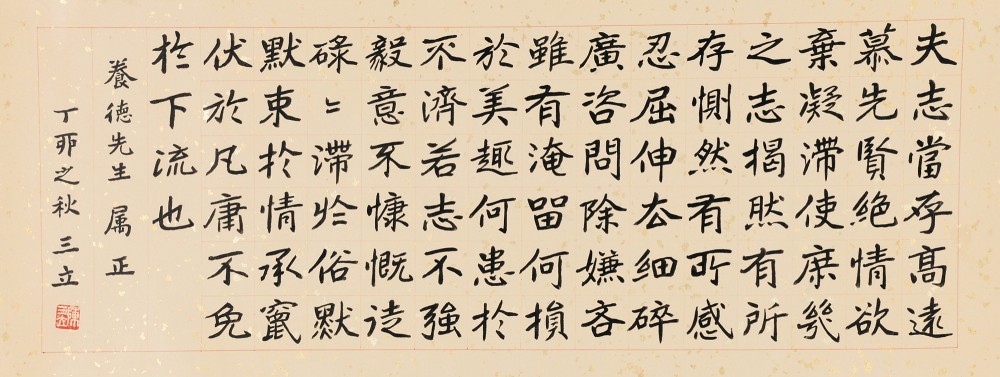 夫志當存高遠
慕先賢絶情欲
棄凝滯使庶幾
之志揭然有所
存惻然有所感
忍屈伸去細碎
廣咨問除嫌吝
雖有淹留何損
於美趣何患於
不濟若志不強
毅意不慷慨徒
碌〻滯於俗默
默束於情承竄
伏於凡庸不免
於下流也
養德先生 属正
丁卯之秋 三立